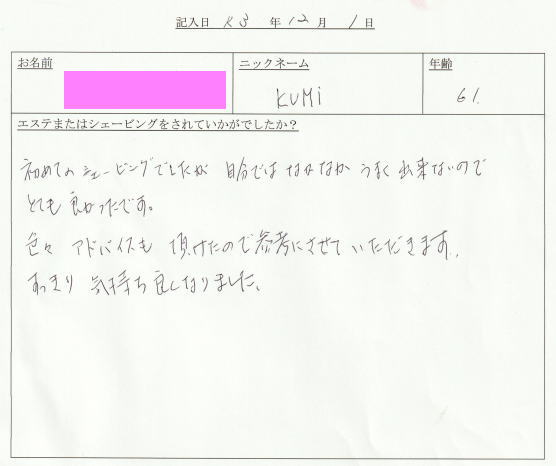 記入日 R3 年 12 月 1 日
お名前 ニックネーム 年齢
KUMI 61.
エステまたはシェービングをされていかがでしたか?
初めてのシェービングでしたが 自分では なかなか うまく出来ないので
とても良かったです。
色々 アドバイスも 頂けたので参考にさせていただきます。
すっきり 気持ち良くなりました。